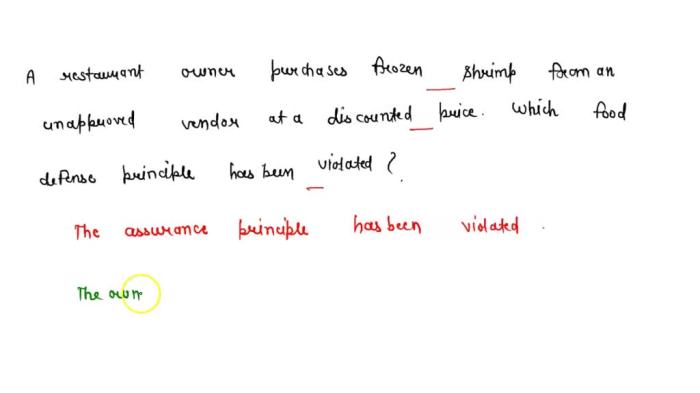 A restaurant owner purchases frozen shrimp from an
unapproved vendor at a discounted price. Which food
defense principle has been violated?
The assurance principle has been violated.
The own